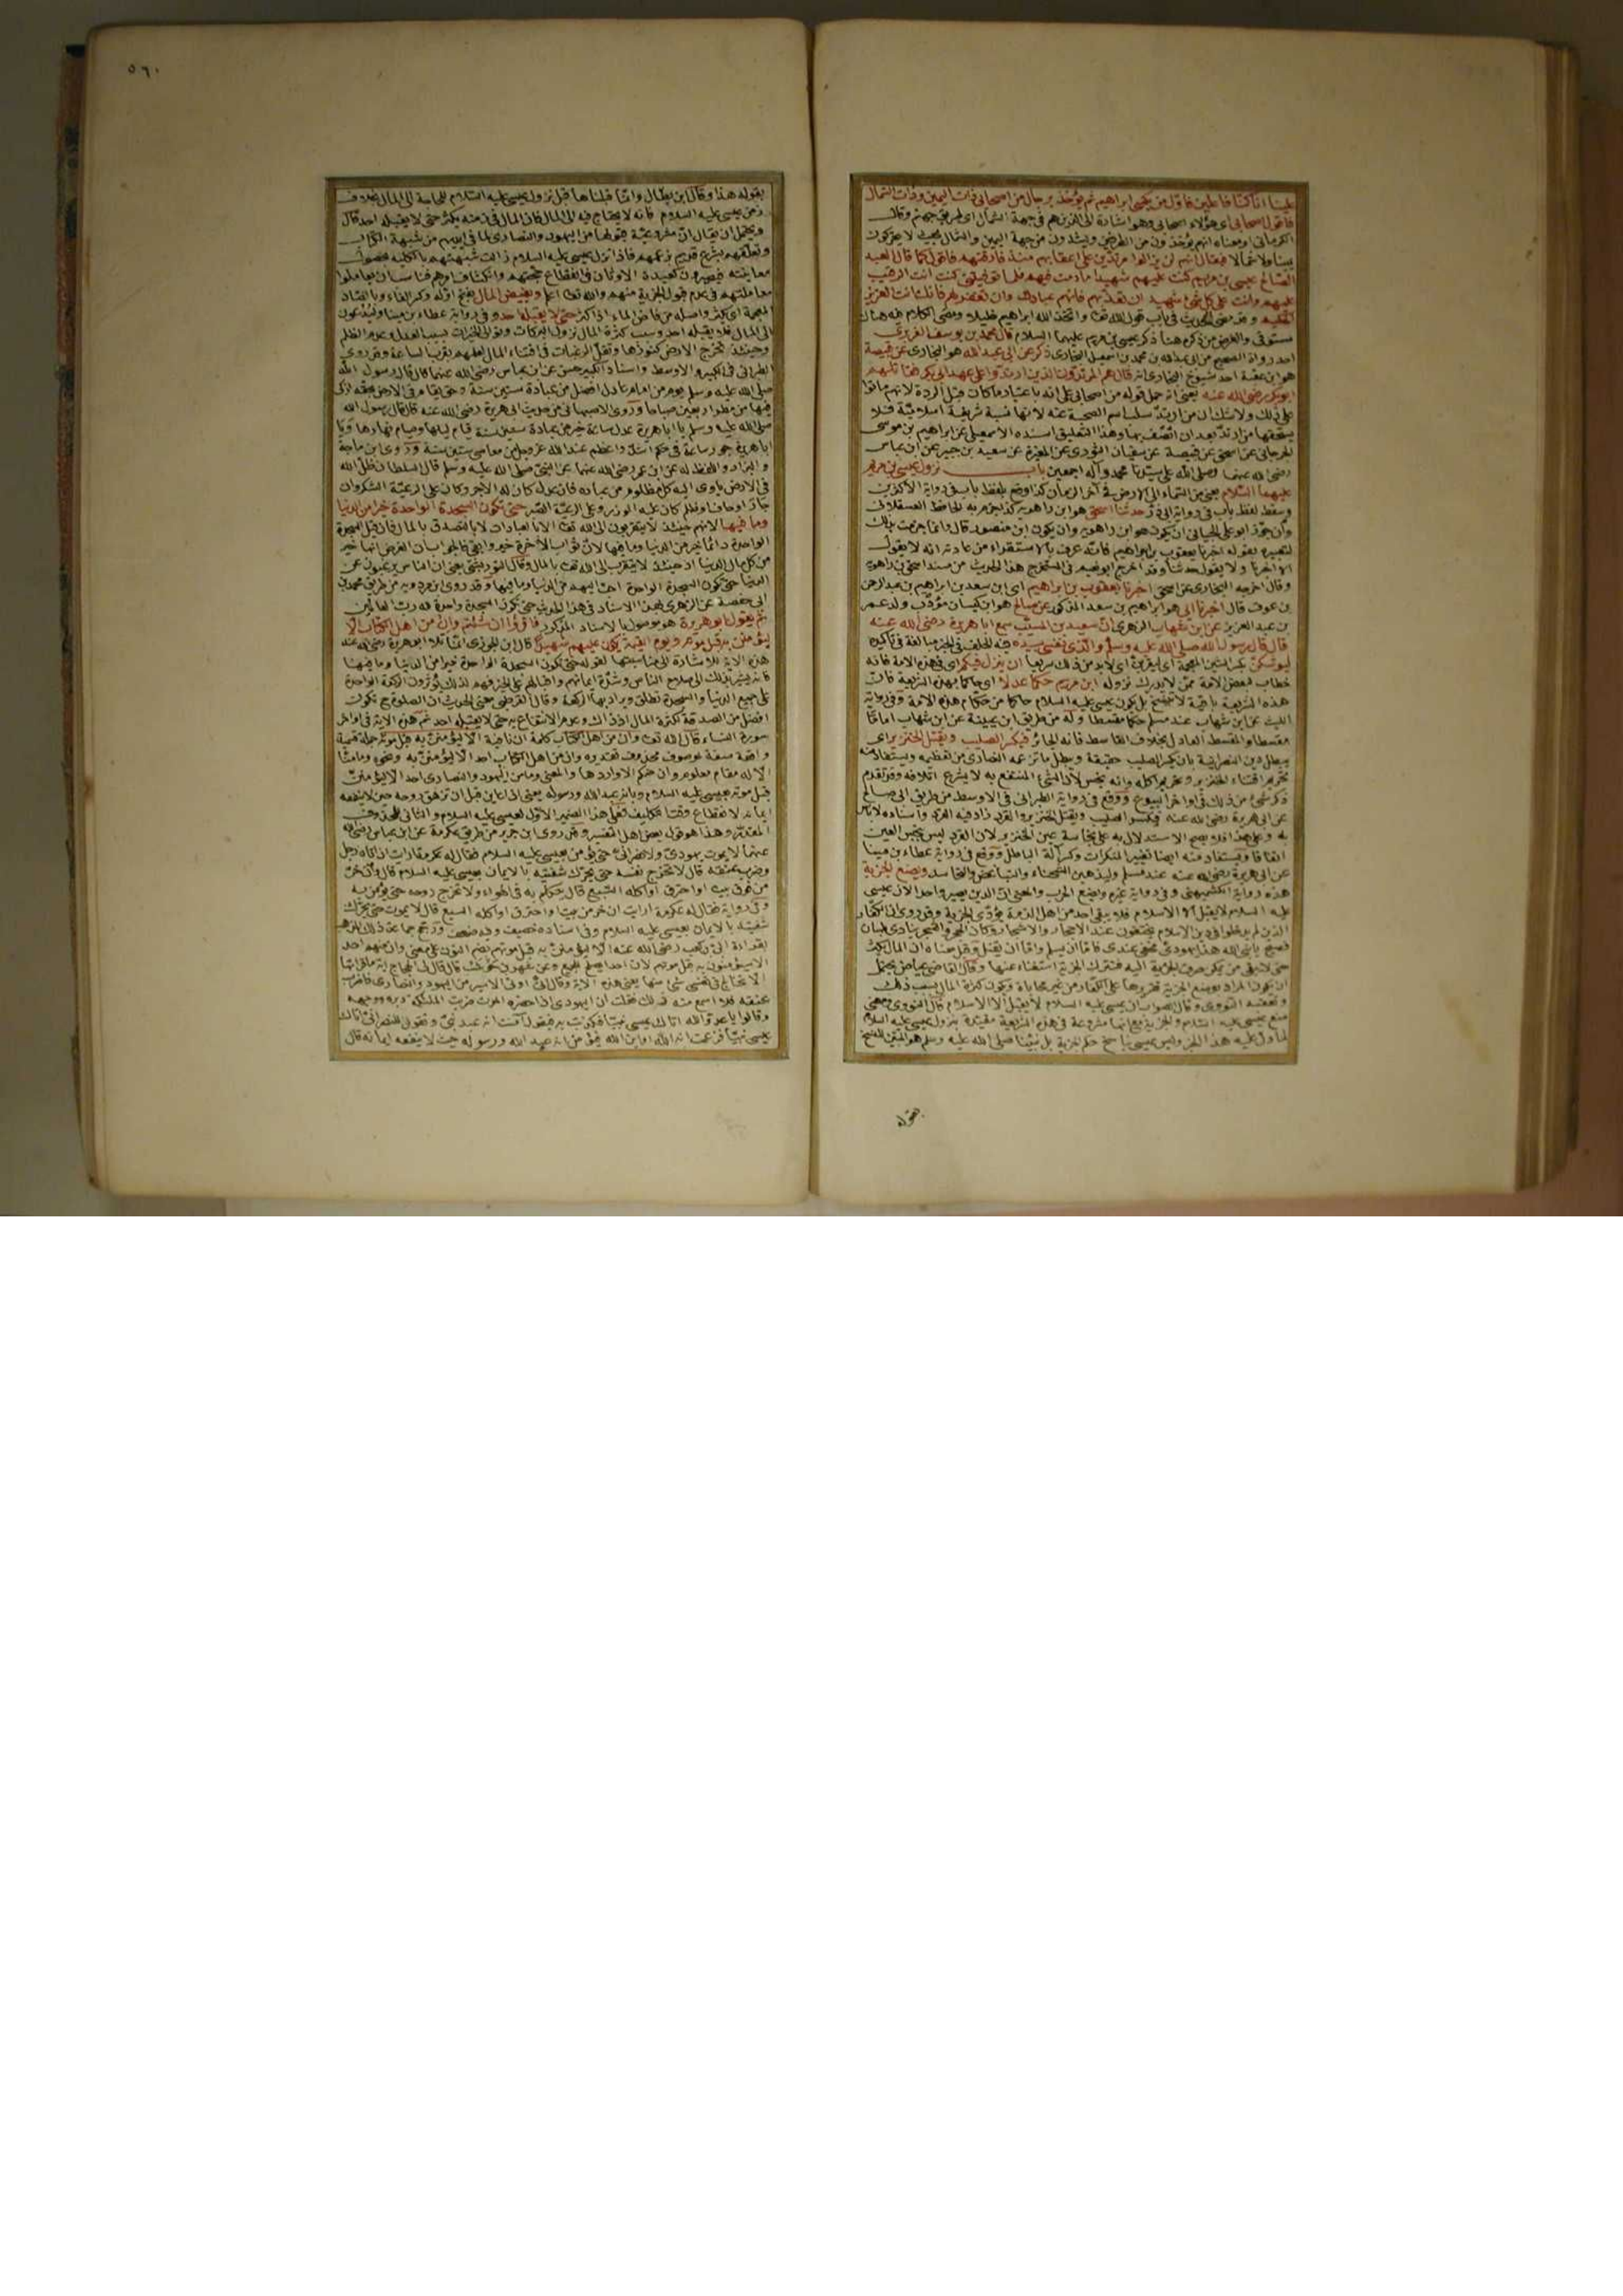 علينا انا كنا فاعلين فاول من يكسى ابراهيم ثم يؤخذ برجال من اصحابي ذات اليمين وذات الشمال
فاقول اصحابي اي هؤلاء اصحابي وهو اشارة الى الذين هم في جهة الشمال اي طريق جهنم وقال
الكرماني او معناه انهم يؤخذون من الطرفين ويشدون من جهة اليمين والشمال بحيث لا يتحركون
يمينا ولا شمالا فيقال انهم لن يزالوا مرتدين على اعقابهم منذ فارقتهم فاقول كما قال العبد
الصالح عيسى بن مريم كنت عليهم شهيدا ما دمت فيهم فلما توفيتني كنت انت الرقيب
عليهم وانت على كل شئ شهيد ان تعذبهم فانهم عبادك وان تغفر لهم فانك انت العزيز
الحكيم وقد مضى الحديث في باب قول الله تعالى واتخذ الله ابراهيم خليلا ومضى الكلام فيه هناك
مستوفى والغرض من ذكره هنا ذكر عيسى بن مريم عليهما السلام قال محمد بن يوسف الفربري
احد رواة الصحيح عن ابي عبدالله بن محمد بن اسمعيل البخاري ذكر عن ابي عبد الله هو البخاري عن قبيصة
هو ابن عقبة احد شيوخ البخاري انه قال هم المرتدون الذين ارتدوا على عهد ابي بكر فقاتلهم
ابوبكر رضي الله عنه يعني انه حمل قوله من اصحابي على انه باعتبار ما كان قبل الردة لانهم ماتوا
على ذلك ولا شك ان من ارتد سلب اسم الصحبة عنه لانها نسبة شريفة اسلامية فلا
يستحقها من ارتد بعد ان اتصف بها وهذا التعليق اسنده الاسمعيلي عن ابراهيم بن موسى
الجرجاني عن اسحق عن قبيصة عن سفيان الثوري عن المغيرة عن سعيد بن جبير عن ابن عباس
رضي الله عنهما وصلى الله على سيدنا محمد وآله اجمعين باب نزول عيسى بن مريم
عليهما السلام يعني من السماء الى الارض في آخر الزمان كذا وقع بلفظ باب في رواية الاكثرين
وسقط لفظ باب في رواية ابي ذر حدثنا اسحق هو ابن راهويه كذا جزم به الحافظ العسقلاني
وان جوز ابو علي الجياني ان يكون هو ابن راهويه وان يكون ابن منصور قال وانما جزمت بذلك
لتعبيره بقوله اخبرنا يعقوب بن ابراهيم فانه عرف بالاستقراء من عادته انه لا يقول
الا اخبرنا ولا يقول حدثنا وقد اخرج ابو نعيم في المستخرج هذا الحديث من مسند اسحق بن راهويه
وقال اخرجه البخاري عن اسحق اخبرنا يعقوب بن ابراهيم اي ابن سعد بن ابراهيم بن عبدالرحمن
بن عوف قال اخبرنا ابي هو ابراهيم بن سعد المذكور عن صالح هو ابن كيسان مؤدب ولد عمر
بن عبد العزيز عن ابن شهاب الزهري ان سعيد بن المسيب سمع ابا هريرة رضي الله عنه
قال قال رسول الله صلى الله عليه وسلم والذي نفسي بيده فيه الحلف في الخبر مبالغة في تأكيده
ليوشكن بكسر الشين المعجمة اي ليقربن اي لابد من ذلك سريعا ان ينزل فيكم اي في هذه الامة فانه
خطاب لبعض الامة ممن لا يدرك نزوله ابن مريم حكما عدلا اي حاكما بهذه الشريعة فان
هذه الشريعة باقية لا تنسخ بل يكون عيسى عليه السلام حاكما من حكام هذه الامة وفي رواية
الليث عن ابن شهاب عند مسلم حكما مقسطا وله من طريق ابن عيينة عن ابن شهاب اماما
مقسطا والمقسط العادل بخلاف القاسط فانه الجائر فيكسر الصليب ويقتل الخنزير اي
يبطل دين النصرانية بان يكسر الصليب حقيقة ويبطل ما تزعمه النصارى من تعظيمه ويستفاد منه
تحريم اقتناء الخنزير وتحريم اكله وانه نجس لان الشئ المنتفع به لا يشرع اتلافه وقد تقدم
ذكر شئ من ذلك في اواخر البيوع ووقع في رواية الطبراني في الاوسط من طريق ابي صالح
عن ابي هريرة رضي الله عنه فيكسر الصليب ويقتل الخنزير والقرد زاد فيه القرد واسناده لا بأس
به وعلى هذا فلا يصح الاستدلال به على نجاسة عين الخنزير لان القرد ليس بنجس العين
اتفاقا ويستفاد منه ايضا تغيير المنكرات وكسر آلة الباطل ووقع في رواية عطاء بن مينا
عن ابي هريرة رضي الله عنه عند مسلم وليذهبن الشحناء والتباغض والتحاسد ويضع الجزية
هذه رواية الكشميهني وفي رواية غيره ويضع الحرب والمعنى ان الدين يصير واحدا لان عيسى
عليه السلام لا يقبل الا الاسلام فلا يبقى احد من اهل الذمة يؤدي الجزية وقد روى ان الكفار
الذين لم يدخلوا في دين الاسلام يختفون عند الاحجار والاشجار وكان الحجر والشجر ينادي بلسان
فصيح يا نبي الله هذا يهودي مختفي عندي فاما ان يسلم واما ان يقتل وقيل معناه ان المال يكثر
حتى لا يبقى من يمكن صرف الجزية اليه فتترك الجزية استغناء عنها وقال القاضي عياض يحتمل
ان يكون المراد بوضع الجزية تقريرها على الكفار من غير محاباة ويكون كثرة المال بسبب ذلك
وتعقبه النووي وقال الصواب ان عيسى عليه السلام لا يقبل الا الاسلام قال النووي ومعنى
منع عيسى عليه السلام والجزية مع انها مشروعة في هذه الشريعة مقيدة بنزول عيسى عليه السلام
لما دل عليه هذا الخبر وليس عيسى بناسخ حكم الجزية بل نبينا صلى الله عليه وسلم هو المبين للنسخ
بقوله
٥٦٠
بقوله هذا وقال ابن بطال وانما قبلناها قبل نزول عيسى عليه السلام للحاجة الى المال بخلاف
زمن عيسى عليه السلام فانه لا يحتاج فيه الى المال فان المال في زمنه يكثر حتى لا يقبله احد قال
ويحتمل ان يقال ان مشروعية قبولها من اليهود والنصارى لما في ايديهم من شبهة الكتاب
وتعلقهم بشرع قديم بزعمهم فاذا نزل عيسى عليه السلام زالت شبهتهم بالكلية لحصول
معاينته فيصيرون كعبدة الاوثان في انقطاع حجتهم وانكشاف امرهم فناسب ان يعاملوا
معاملتهم في عدم قبول الجزية منهم والله تعالى اعلم ويفيض المال بفتح اوله وكسر الفاء وبالضاد
المعجمة اي يكثر واصله من فاض الماء اذا كثر حتى لا يقبله احد وفي رواية عطاء بن مينا وليدعون
الى المال فلا يقبله احد وسبب كثرة المال نزول البركات وتوالي الخيرات بسبب العدل وعدم الظلم
وحينئذ تخرج الارض كنوزها وتقل الرغبات في اقتناء المال لعلمهم بقرب الساعة وقد روى
الطبراني في الكبير والاوسط واسناد الكبير حسن عن ابن عباس رضي الله عنهما قال قال رسول الله
صلى الله عليه وسلم يوم من امام عادل افضل من عبادة ستين سنة وحد يقام في الارض بحقه ازكى
فيها من مطر اربعين صباحا وروى الاصبهاني من حديث ابي هريرة رضي الله عنه قال قال رسول الله
صلى الله عليه وسلم يا ابا هريرة عدل ساعة خير من عبادة ستين سنة قيام ليلها وصيام نهارها ويا
ابا هريرة جور ساعة في حكم اشد واعظم عند الله عز وجل من معاصي ستين سنة وروى ابن ماجة
والبزار واللفظ له عن ابن عمر رضي الله عنهما عن النبي صلى الله عليه وسلم قال السلطان ظل الله
في الارض يأوي اليه كل مظلوم من عباده فان عدل كان له الاجر وكان على الرعية الشكر وان
جار او حاف او ظلم كان عليه الوزر وعلى الرعية الصبر حتى تكون السجدة الواحدة خيرا من الدنيا
وما فيها لانهم حينئذ لا يتقربون الى الله تعالى الا بالعبادات لا بالتصدق بالمال فان قيل السجدة
الواحدة دائما خير من الدنيا وما فيها لان ثواب الآخرة خير وابقى فالجواب ان الغرض انها خير
من كل مال الدنيا اذ حينئذ لا يتقرب الى الله تعالى بالمال وقال التوربشتي يعني ان الناس يرغبون عن
الدنيا حتى تكون السجدة الواحدة احب اليهم من الدنيا وما فيها وقد روى ابن مردويه من طريق محمد بن
ابي حفصة عن الزهري بهذا الاسناد في هذا الحديث حتى تكون السجدة واحدة لله رب العالمين
ثم يقول ابو هريرة هو موصول بالاسناد المذكور فاقرؤا ان شئتم وان من اهل الكتاب الا
ليؤمنن به قبل موته ويوم القيمة يكون عليهم شهيدا قال ابن الجوزي انما تلا ابو هريرة رضي الله عنه
هذه الآية للاشارة الى مناسبتها لقوله حتى تكون السجدة الواحدة خيرا من الدنيا وما فيها
فانه يشير بذلك الى صلاح الناس وشدة ايمانهم واقبالهم على الخير فهم لذلك يؤثرون الركعة الواحدة
على جميع الدنيا والسجدة تطلق ويراد بها الركعة وقال القرطبي معنى الحديث ان الصلوة ح تكون
افضل من الصدقة لكثرة المال اذ ذاك وعدم الانتفاع به حتى لا يقبله احد ثم هذه الآية في اواخر
سورة النساء قال الله تعالى وان من اهل الكتاب كلمة ان نافية الا ليؤمنن به قبل موته جملة قسمية
واقعة صفة لموصوف محذوف تقديره وان من اهل الكتاب احد الا ليؤمنن به ونحوه وما منا
الا له مقام معلوم وان منكم الا واردها والمعنى وما من اليهود والنصارى احد الا ليؤمنن
قبل موته بعيسى عليه السلام وبانه عبد الله ورسوله يعني اذا عاين قبل ان تزهق روحه حين لا ينفعه
ايمانه لانقطاع وقت التكليف فعلى هذا الضمير الاول لعيسى عليه السلام والثاني للمحذوف
المقدر وهذا هو قول بعض اهل التفسير وقد روى ابن جرير من طريق عكرمة عن ابن عباس رضي الله
عنهما لا يموت يهودي ولا نصراني حتى يؤمن بعيسى عليه السلام فقال له عكرمة ارأيت ان اتاه رجل
وضرب عنقه قال لا تخرج نفسه حتى يحرك شفتيه بالايمان بعيسى عليه السلام قال وان خر
من فوق بيت او احترق او اكله السبع قال يتكلم به في الهواء ولا تخرج روحه حتى يؤمن به
وفي رواية فقال له عكرمة ارأيت ان خر من بيت او احترق او اكله السبع قال لا يموت حتى يحرك
شفتيه بالايمان بعيسى عليه السلام وفي اسناده خصيف وفيه ضعف ورجح جماعة ذلك المذهب
بقراءة ابي بن كعب رضي الله عنه الا ليؤمنن به قبل موتهم بضم النون على معنى وان منهم احد
الا سيؤمنون به قبل موتهم لان احدا يصلح للجمع وعن شهر بن حوشب قال قال لي الحجاج آية ما قرأتها
الا تخالج في نفسي شئ منها يعني هذه الآية وقال اني اوتى الاسير من اليهود والنصارى فاضرب
عنقه فلا اسمع منه ذلك فقلت ان اليهودي اذا حضره الموت ضربت الملائكة دبره ووجهه
وقالوا يا عدو الله اتاك عيسى نبيا فكذبت به فيقول آمنت انه عبد نبي وتقول للنصراني اتاك
عيسى نبيا فزعمت انه الله او ابن الله فيؤمن انه عبد الله ورسوله حيث لا ينفعه ايمانه قال